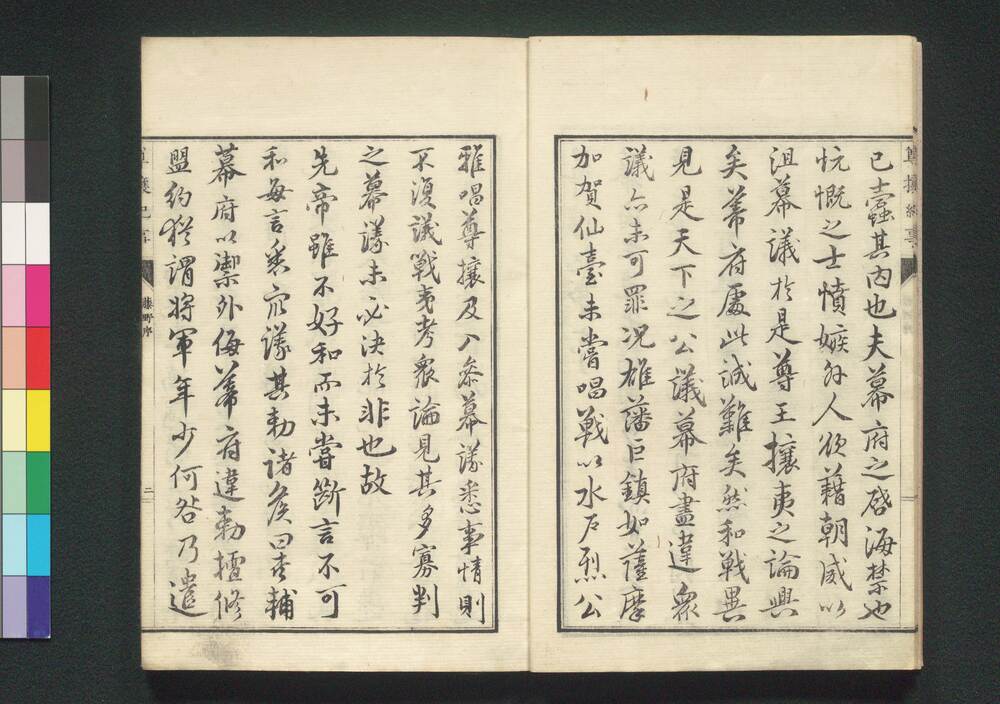 已蠧其内也夫幕府之啓海禁也
忼慨之士憤嫉外人欲藉朝威以
沮幕議於是尊王攘夷之論興
矣幕府處此誠難矣然和戰異
見是天下之公議幕府盡違衆
議亦未可罪况雄藩巨鎮如薩摩
加賀仙臺未嘗唱戰以水戶烈公
雅唱尊攘及入參幕議悉事情則
不復議戰夷考衆論見其多寡判
之幕議未必決於非也故
先帝雖不好和而未嘗斷言不可
和每言悉衆議其勅諸侯曰君輔
幕府以禦外侮幕府違勅擅修
盟約猶謂將軍年少何咎乃遣
藤野序
二